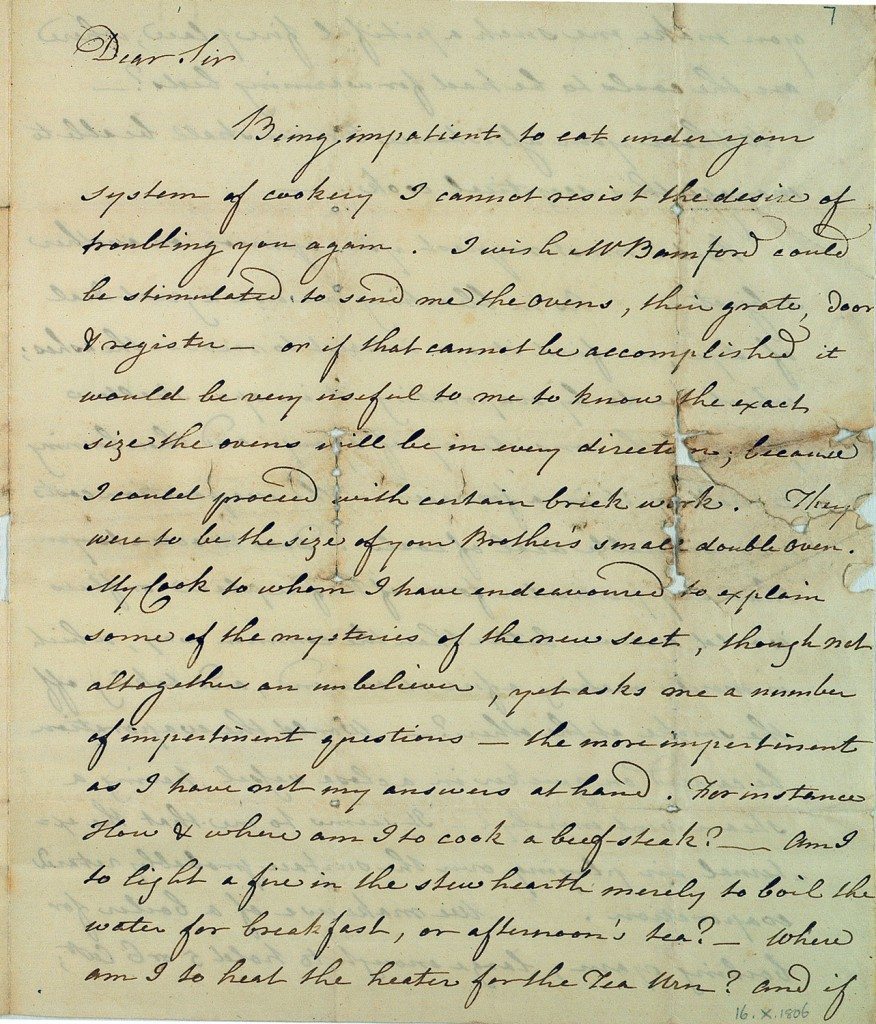 7
Dear Sir
Being impatient to eat under your
system of cookery I cannot resist the desire of
troubling you again. I wish Mr Bamford could
be stimulated to send me the ovens, their grate, door
& register – or if that cannot be accomplished it
would be very useful to me to know the exact
size the ovens will be in every direction; because
I could proceed with certain brick work. They
were to be the size of your Brother's small double oven.
My Cook to whom I have endeavoured to explain
some of the mysteries of the new sect, though not
altogether an unbeliever, yet asks me a number
of impertinent questions – the more impertinent
as I have not my answers at hand. For instance
How & where am I to cook a beef-steak? — Am I
to light a fire in the stew hearth merely to boil the
water for breakfast, or afternoon's tea? – Where
am I to heat the heater for the Tea Urn? and if
16.X.1806